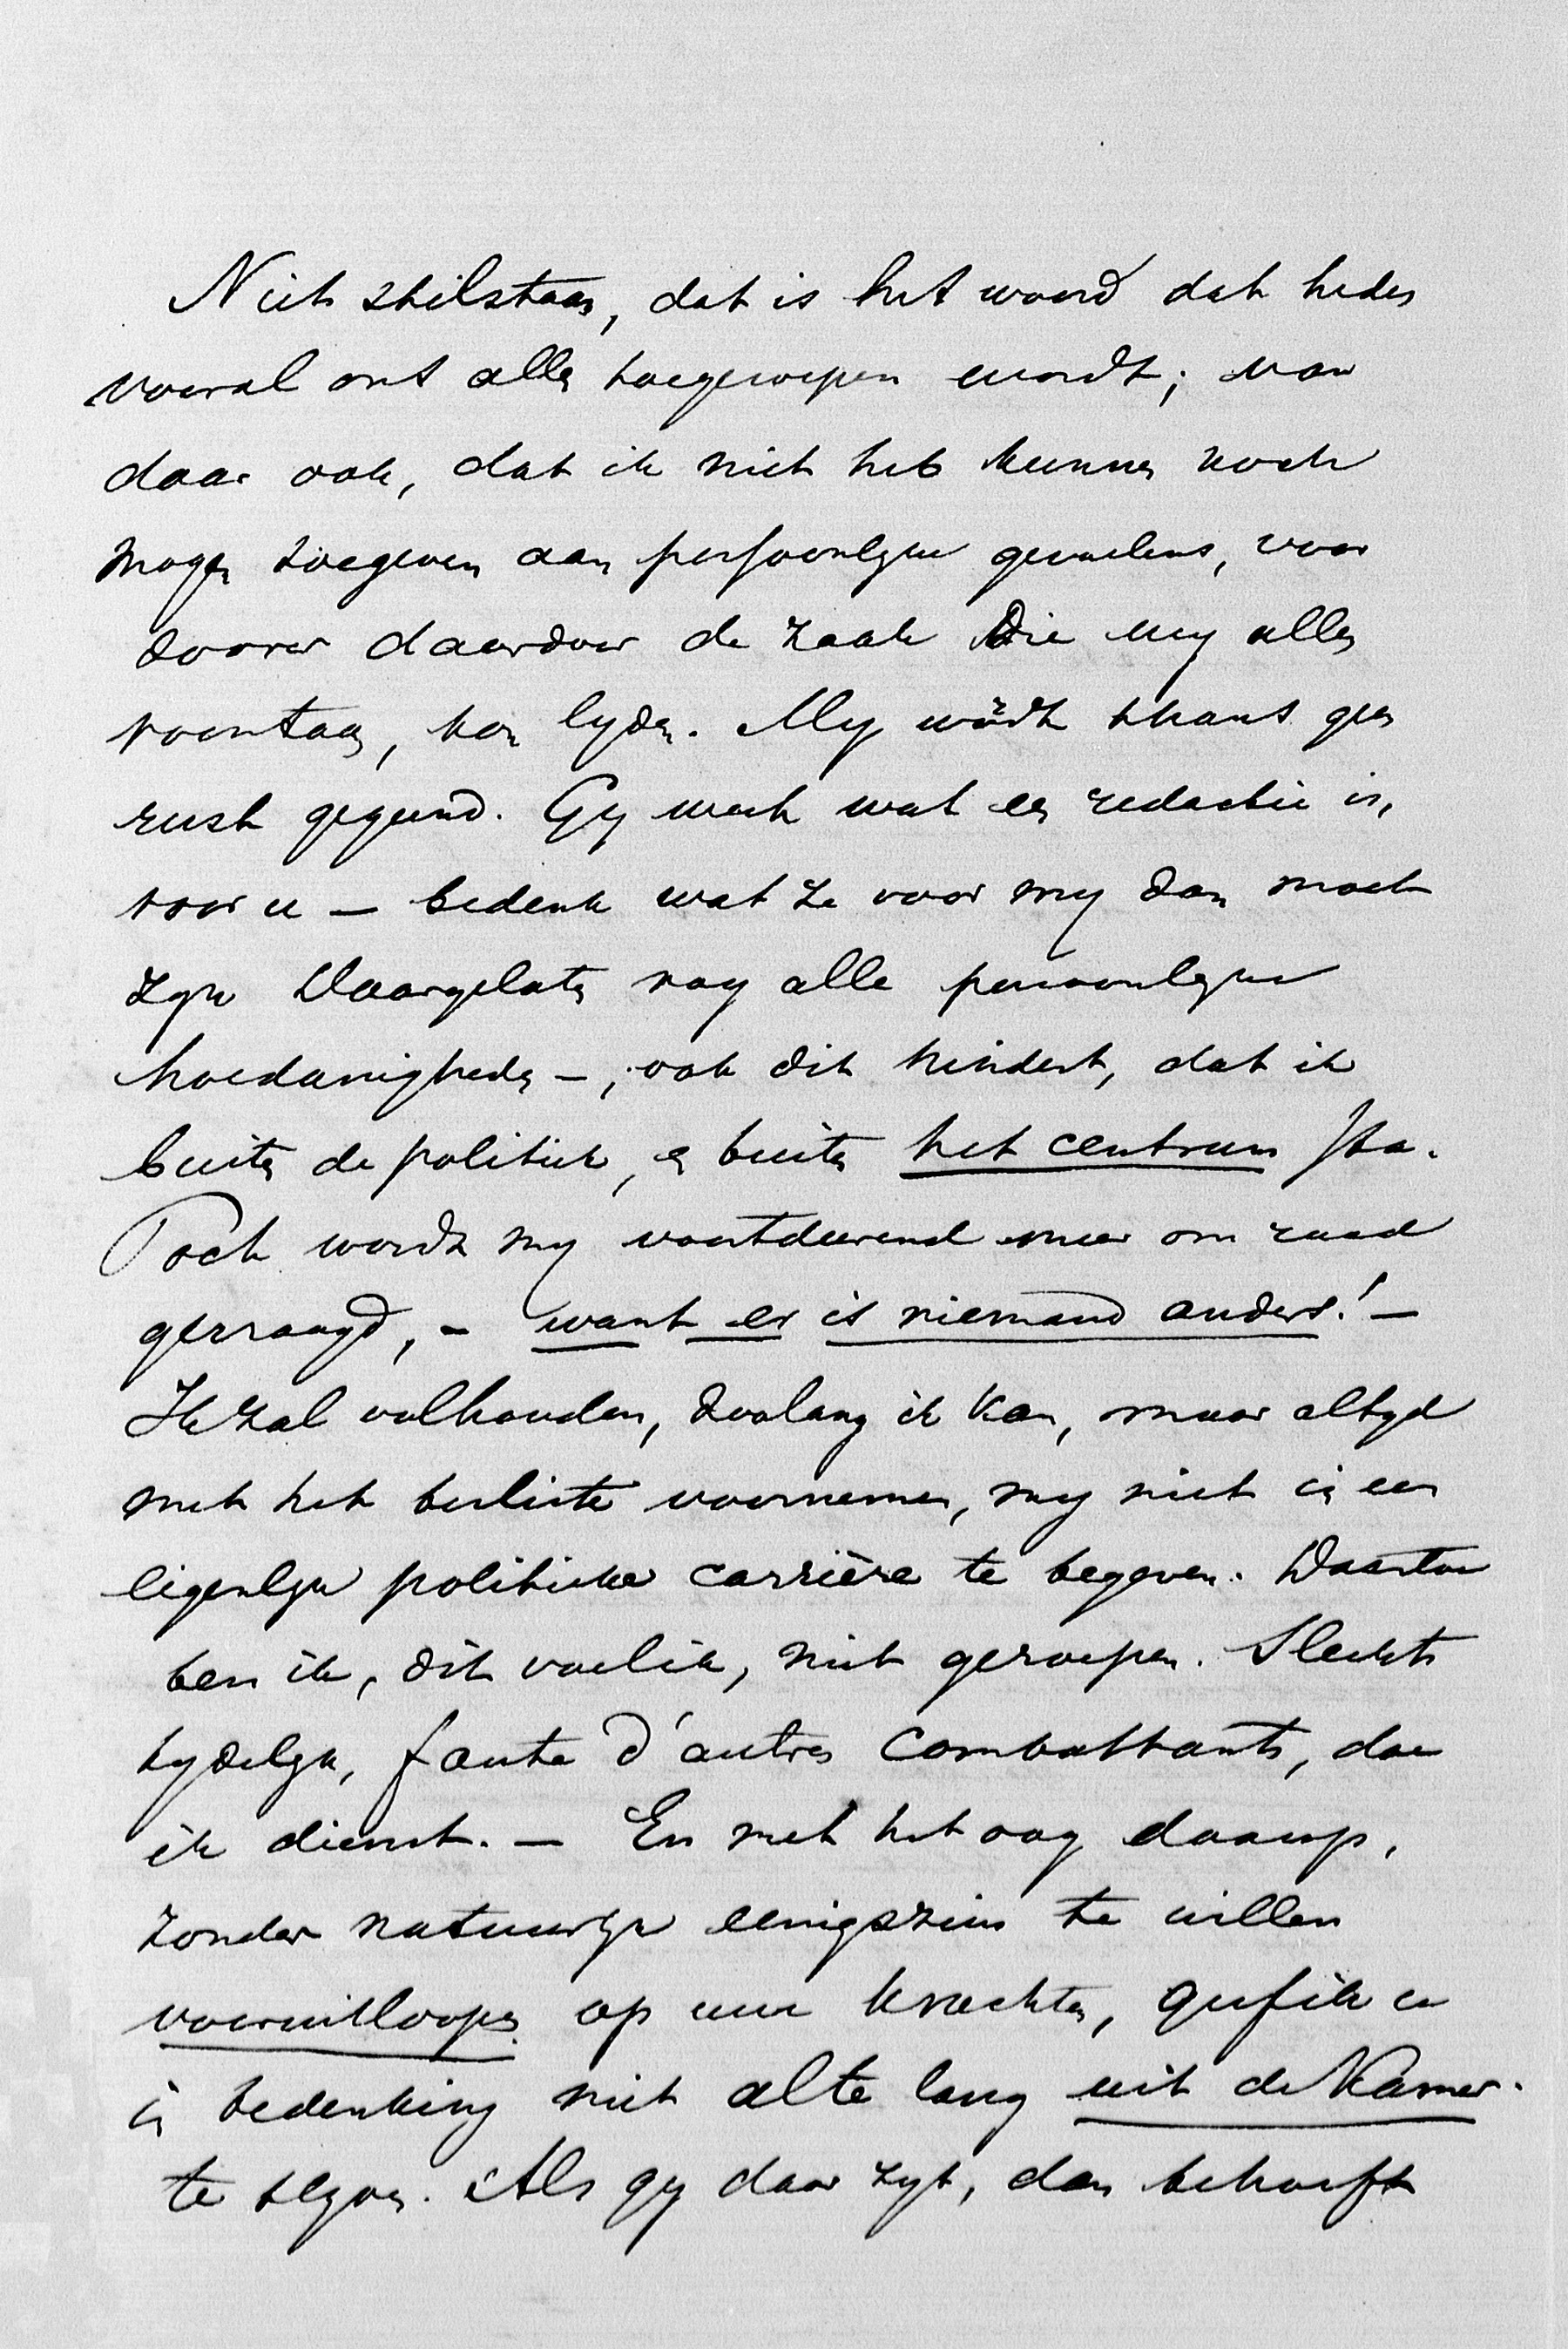 Niet stilstaan, dat is het woord dat heden
vooral ons allen toegeroepen wordt; van
daar ook, dat ik niet heb kunnen noch
mogen toegeven aan persoonlyke gevoelens, voor
zoover daardoor de zaak die my alles
voorstaan, kon lyden. My wordt thans geen
rust gegund. Gy weet wat een redactie is,
voor u — bedenk wat ze voor my dan moet
zyn Daargelaten nog alle persoonlyke
hoedanigheden —, ook dit hindert, dat ik
buiten de politiek, en buiten het centrum sta.
Toch wordt my voortdurend meer om raad
gevraagd, – want er is niemand anders! –
Ik zal volhouden, zoolang ik kan, maar altyd
met het besliste voornemen, my niet in een
eigenlyke politieke carrière te begeven. Daartoe
ben ik, dit voel ik, niet geroepen. Slechts
tydelyk, faute d'autres combattants, doe
ik dienst. — En met het oog daarop,
zonder natuurlyk eenigszins te willen
vooruitloopen op uwe krachten, geef ik u
in bedenking niet al te lang uit de Kamer
te blyven. Als gy daar zyt, dan behoeft